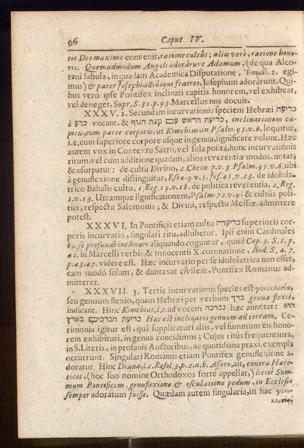 96 Caput IV.
tio Deo maxime convenit, ratione cultûs; aliis verò, ratione hono-
ris. Quemadmodum Angeli adorârunt Adamum, (de qua Alco-
rani fabula, in quadam Academica Disputatione, egi-
mus) & pater Josephusque fratres, Josephum adorârunt. Qui-
bus verò ipse Pontifex inclinati capitis honorem, vel exhibeat,
vel deneget, Supr. S. 30. p. 93. Marcellus nos docuit.
XXXV. 2. Secundam incurvationis speciem Hebræi כריעה
vocant, & כריעת הראש עם קצת הגוף inclinationem ca-
pitis, cum parte corporis, ut Kimchius in Psalm. 95. v. 6. loquitur,
i.e. cum superiore corpore usque in genua, significare volunt. Hæc
autem vox in Contextu Sacro, vel sola posita, hunc incurvationis
ritum, vel cum additione quadam, alios reverentiæ modos, notat;
& usurpatur: de cultu Divino, 2. Chron. 7. v. 3. Psalm. 95. v. 6. ubi
à genuflexione distinguitur, Esræ. 9. v. 5. Jes. 45. v. 23. de idolola-
trico Bahalis cultu, 1. Reg. 19. v. 18. de politica reverentia, 2. Reg.
1. v. 13. Utramque significationem, Psalm. 72. v. 9. & cultûs poli-
tici, respectu Salomonis, & Divini, respectu Messiæ, admittere
potest.
XXXVI. In Pontificis etiam cultu כריעה superioris cor-
poris incurvatio, singulari ritu, adhibetur. Ipsi enim Cardinales
se profundè inclinare aliquando coguntur, quod Cap. 5. S. 1. p.
41. in Marcelli verbis: & innocentii X. coronatione, Ibid. S. 47.
p. 43. 47. videre est. Hæc incurvatio per se idololatrica non esset,
cum modò solam, & duntaxat civilem, Pontifex Romanus ad-
mitteret.
XXXVII. 3. Tertia incurvationis species est γονυκλισία,
seu genuum flexio, quam Hebræi per verbum ברך genua flexit,
indicant. Hinc Kimchius, l.c. ad vocem נברכה annotat: הוא
כריעת הברכים בארץ Hæc est inclinatio genuum ad terram. Ce-
rimonia igitur est, quâ supplicaturi aliis, vel summum eis hono-
rem exhibituri, in genua concidimus; Cujus ritus frequentiora,
in S. Literis, in profanis Auctoribus, ac quotidiana praxi, exempla
occurrunt. Singulari Romanus etiam Pontifex genuflexione a-
doratur. Hinc Diana, l.c. Resol. 3. p. 2. n. b. Assero, ait, contra Hære-
ticos, (hoc suo nomine Orthodoxos fortè appellat,) licitè Sum-
mum Pontificem genuflexione & osculatione pedum, in Ecclesia
semper adoratum fuisse. Quædam autem singularia, in hac γονυ-
κλισίᾳ,